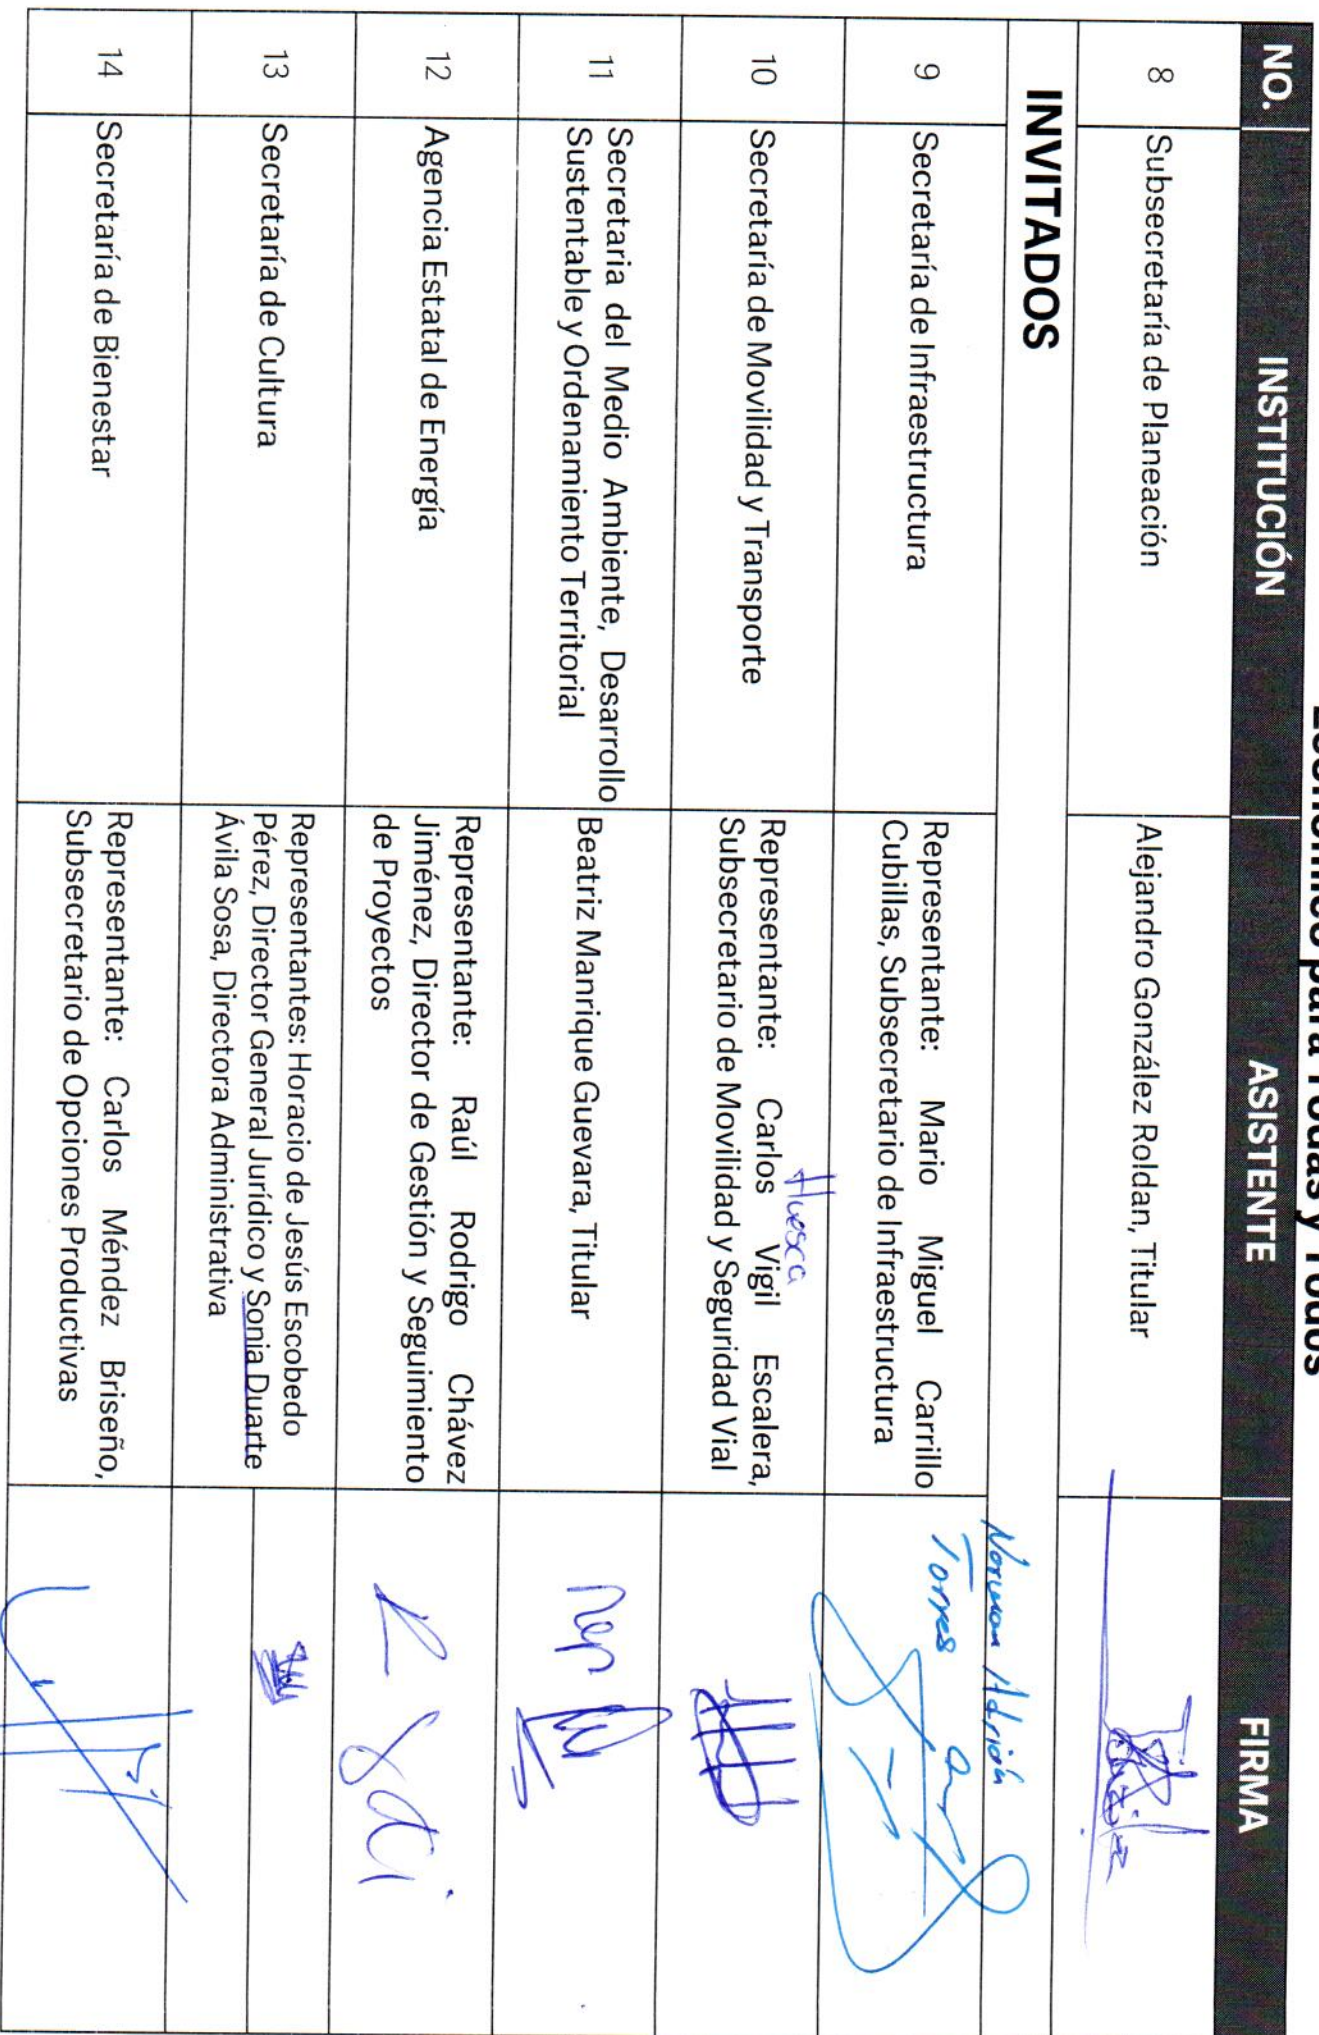 Económico para Todas y Todos
NO. INSTITUCIÓN ASISTENTE FIRMA
8 Subsecretaría de Planeación Alejandro González Roldan, Titular
INVITADOS
Norman Adrián
Torres
9 Secretaría de Infraestructura
Representante: Mario Miguel Carrillo
Cubillas, Subsecretario de Infraestructura
Huesca
10 Secretaría de Movilidad y Transporte
Representante: Carlos Vigil Escalera,
Subsecretario de Movilidad y Seguridad Vial
11 Secretaria del Medio Ambiente, Desarrollo
Sustentable y Ordenamiento Territorial
Beatriz Manrique Guevara, Titular
12 Agencia Estatal de Energía
Representante: Raúl Rodrigo Chávez
Jiménez, Director de Gestión y Seguimiento
de Proyectos
13 Secretaría de Cultura
Representantes: Horacio de Jesús Escobedo
Pérez, Director General Jurídico y Sonia Duarte
Ávila Sosa, Directora Administrativa
14 Secretaría de Bienestar
Representante: Carlos Méndez Briseño,
Subsecretario de Opciones Productivas